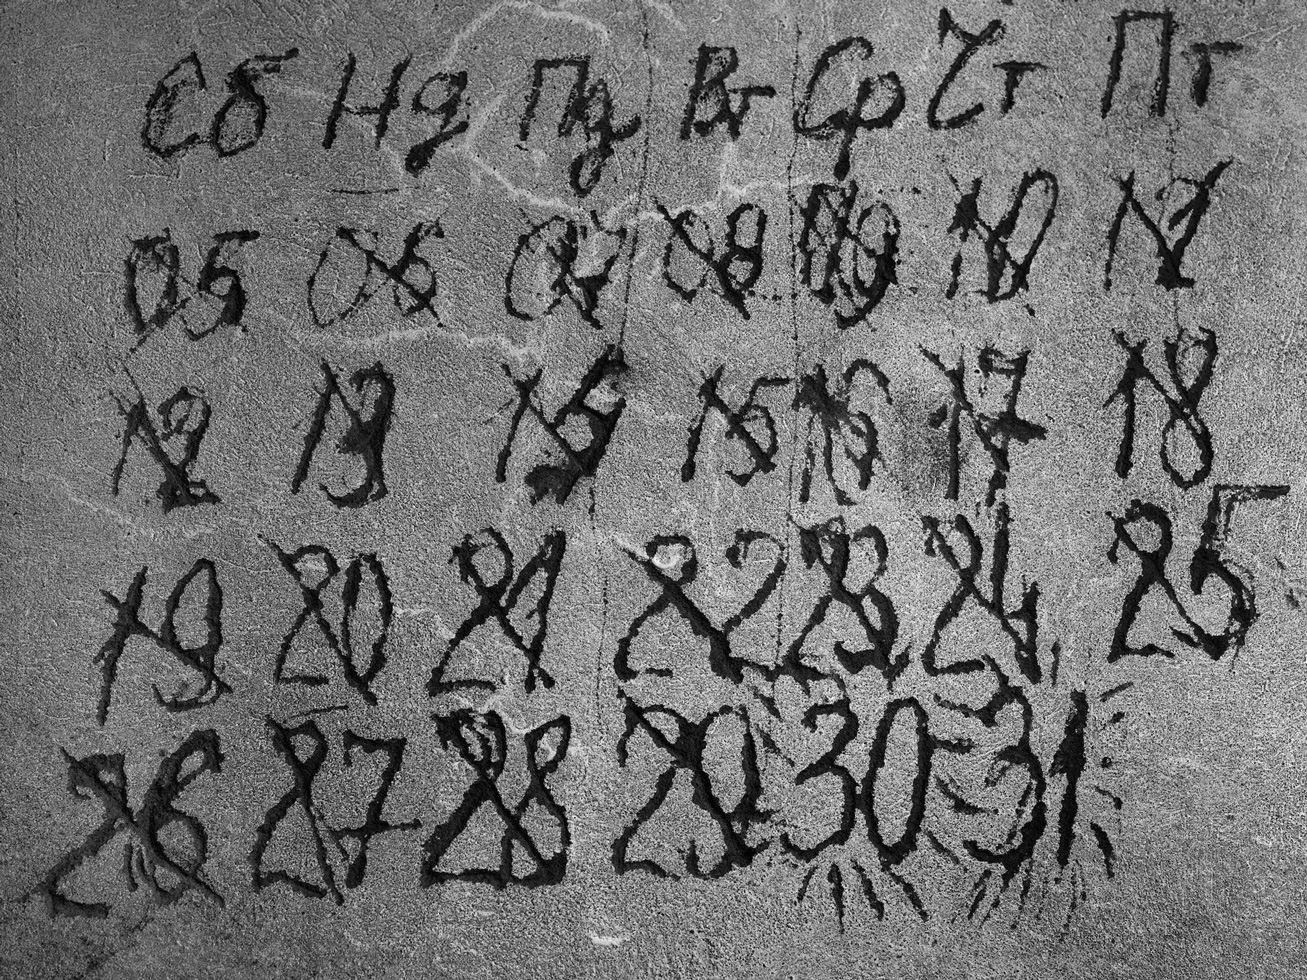 Сб Нд Пд Вт Ср Чт Пт
05 06 07 08 09 10 11
12 13 15 15 16 17 18
19 20 21 22 23 24 25
26 27 28 29 30 31